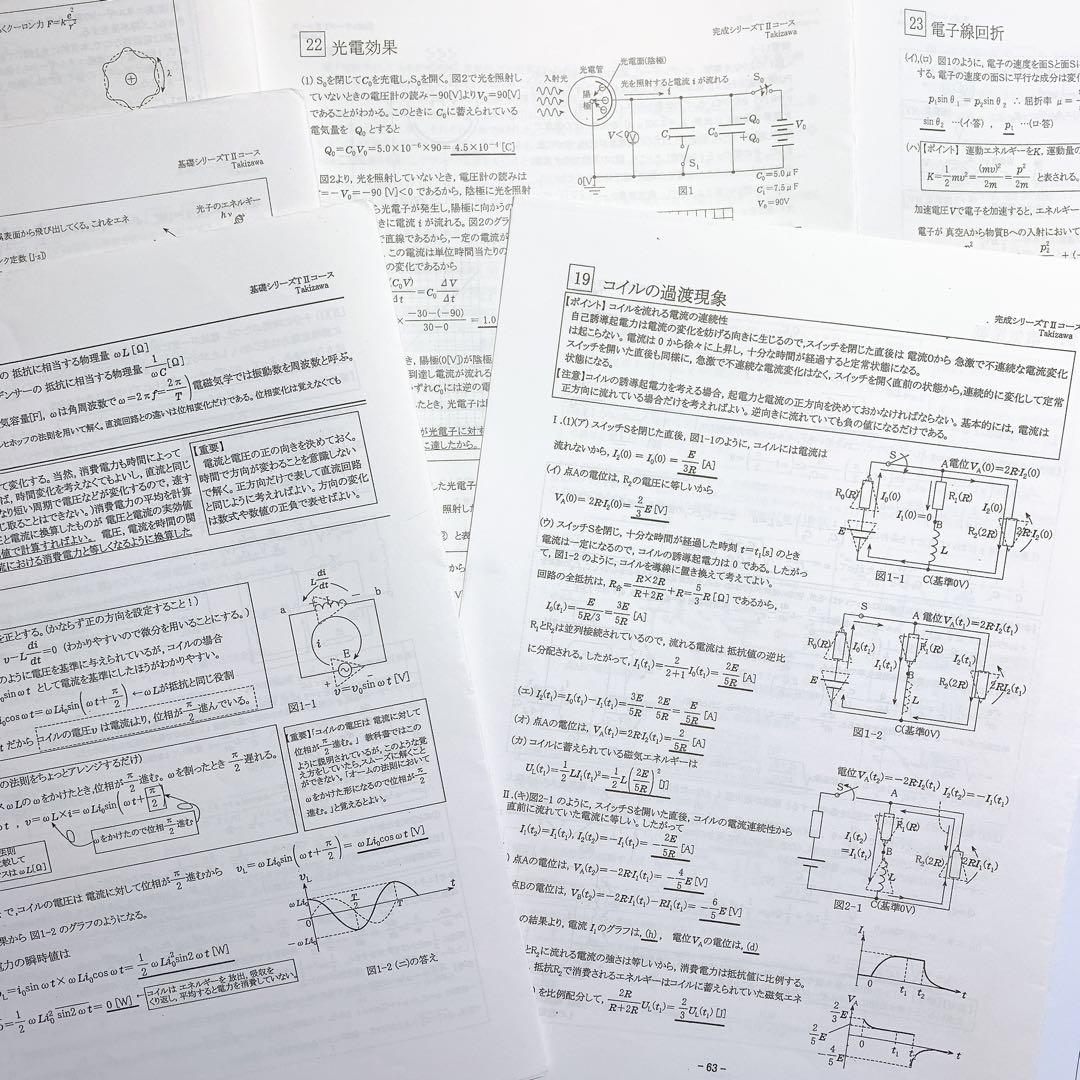 くクーロン力 F=k e²/r²
λ
基礎シリーズTⅡコース
Takizawa
光子のエネルギー
hν
表面から飛び出してくる。これをエネ
ンク定数 [J·s])
22 光電効果
完成シリーズTⅡコース
Takizawa
(1) S₀を閉じてC₀を充電し,S₀を開く。図2で光を照射し
ていないときの電圧計の読み−90[V]よりV₀=90[V]
であることがわかる。このときに C₀に蓄えられている
電気量を Q₀とすると
Q₀=C₀V₀=5.0×10⁻⁶×90=4.5×10⁻⁴ [C]
図2より, 光を照射していないとき, 電圧計の読みは
=−V₀=−90 [V]<0 であるから, 陰極に光を照射
ら光電子が発生し, 陽極に向かうの
きに電流 i が流れる。図2のグラ
で直線であるから, 一定の電流が
この電流は単位時間当たりの
の変化であるから
(C₀V)/Δt=C₀ ΔV/Δt
×−30−(−90)/30−0=1.0
, 陽極(0[V])が陰極
到達し電流が流れる
いずれC₀には逆の電
たとき, 光電子は
が光電子に対す
に達したから。
入射光
光電管
光電面(陰極)
光を照射すると電流 i が流れる
陽極
i
S₀
V<0
C₁
C₀
−Q₀
+Q₀
V₀
S₁
0[V]
図1
C₀=5.0μF
C₁=7.5μF
V₀=90V
23 電子線回折
(イ),(ロ) 図1のように, 電子の速度を面Sと面Sに
する。電子の速度の面Sに平行な成分は変化
p₁sinθ₁ = p₂sinθ₂ ∴ 屈折率 μ =
sinθ₂ …(イ·答) , p₁ …(ロ·答)
(ハ)【ポイント】 運動エネルギーをK, 運動量の
K=1/2 mv²=(mv)²/2m=p²/2m と表される。
加速電圧Vで電子を加速すると, エネルギー
電子が 真空Aから物質Bへの入射において
基礎シリーズTⅡコース
Takizawa
の 抵抗に相当する物理量 ωL[Ω]
デンサーの 抵抗に相当する物理量 1/ωC[Ω]
気容量[F], ωは角周波数で ω=2πf=2π/T) 電磁気学では振動数を周波数と呼ぶ。
ヒホッフの法則を用いて解く。直流回路との違いは位相変化だけである。位相変化は覚えなくても
て変化する。当然, 消費電力も時間によって
ば, 時間変化を考えなくてもよいし, 直流と同じ
なり短い周期で電圧などが変化するので, 速す
じ取ることはできない。)消費電力の平均を計算
圧と電流に換算したものが 電圧と電流の実効値
値で計算すればよい。 電圧, 電流を時間の関
流における消費電力と等しくなるように換算した
【重要】
電流と電圧の正の向きを決めておく。
時間で方向が変わることを意識しない
で解く。正方向だけで表して直流回路
と同じように考えればよい。方向の変化
は数式や数値の正負で表せばよい。
を正とする。(かならず正の方向を設定すること！)
v−L di/dt=0 (わかりやすいので微分を用いることにする。)
のように電圧を基準に与えられているが, コイルの場合
₀sinωt として電流を基準にしたほうがわかりやすい。
i₀cosωt=ωLi₀sin(ωt+π/2) ←ωLが抵抗と同じ役割
だから コイルの電圧vは電流iより, 位相が π/2 進んでいる。
L di/dt
a
b
i
E
v=v₀sinωt[V]
図1-1
の法則をちょっとアレンジするだけ)
ωLのωをかけたとき, 位相が π/2 進む。ωを割ったとき π/2 遅れる。
t , v=ωL×i=ωLi₀sin(ωt+π/2)
ωをかけたので位相 π/2 進む
【重要】「コイルの電圧は 電流に対して
位相が π/2 進む。」 教科書ではこの
ように説明されているが, このような覚
え方をしていたら, スムーズに解くこと
ができない。「オームの法則において
ωをかけた形になるので位相が π/2
進む。」と覚えるとよい。
で, コイルの電圧は 電流に対して位相が π/2 進むから
v_L=ωLi₀sin(ωt+π/2)=ωLi₀cosωt [V]
果から 図1-2 のグラフのようになる。
電力の瞬時値は
=i₀sinωt×ωLi₀cosωt=1/2 ωLi₀²sin2ωt [W]
=1/2 ωLi₀² sin2ωt=0 [W]
コイルは エネルギーを 放出, 吸収を
くり返し, 平均すると電力を消費していない。
v_L
ωLi₀
0
−ωLi₀
T/2
T
t
図1-2 (ニ)の答え
19 コイルの過渡現象
完成シリーズTⅡコース
Takizawa
【ポイント】コイルを流れる電流の連続性
自己誘導起電力は電流の変化を妨げる向きに生じるので, スイッチを閉じた直後は 電流0から 急激で不連続な電流変化
は起こらない。電流は 0 から徐々に上昇し, 十分な時間が経過すると定常状態になる。
スイッチを開いた直後も同様に, 急激で不連続な電流変化はなく, スイッチを開く直前の状態から, 連続的に変化して定常
状態になる。
【注意】コイルの誘導起電力を考える場合, 起電力と電流の正方向を決めておかなければならない。基本的には, 電流は
正方向に流れている場合だけを考えればよい。逆向きに流れていても負の値になるだけである。
Ⅰ.(1)(ア) スイッチSを閉じた直後, 図1-1のように, コイルには電流は
流れないから, I₂(0) = I₀(0) = E/3R [A]
(イ) 点Aの電位は, R₂の電圧に等しいから
V_A(0)=2RI₂(0)=2/3 E[V]
(ウ) スイッチSを閉じ, 十分な時間が経過した時刻 t=t₁[s]のとき
電流は一定になるので, コイルの誘導起電力は 0 である。したがっ
て, 図1-2 のように, コイルを導線に置き換えて考えてよい。
回路の全抵抗は, R合=R×2R/R+2R+R=5/3 R[Ω]であるから,
I₀(t₁)=E/5R/3=3E/5R [A]
R₁とR₂は並列接続されているので, 流れる電流は 抵抗値の逆比
に分配される。したがって, I₁(t₁)=2/2+1 I₀(t₁)=2E/5R
(エ) I₂(t₁)=I₀(t₁)−I₁(t₁)=3E/5R−2E/5R=E/5R [A]
(オ) 点Aの電位は, V_A(t₁)=2RI₂(t₁)=2/5R [A]
(カ) コイルに蓄えられている磁気エネルギーは
U_L(t₁)=1/2 LI₁(t₁)²=1/2 L(2E/5R)² [J]
Ⅱ.(キ) 図2-1 のように, スイッチSを開いた直後, コイルの電流連続性から
直前に流れていた電流に等しい。したがって
I₁(t₂)=I₁(t₁), I₂(t₂)=−I₁(t₁)=−2E/5R [A]
点Aの電位は, V_A(t₂)=−2RI₁(t₁)=−4/5 E[V]
点Bの電位は, V_B(t₂)=−2RI₁(t₁)−RI₁(t₁)=−6/5 E[V]
の結果より, 電流 I₁のグラフは, (h) , 電位V_Aの電位は, (d)
とR₂に流れる電流の強さは等しいから, 消費電力は抵抗値に比例する。
抵抗R₂で消費されるエネルギーはコイルに蓄えられていた磁気エネ
を比例配分して, 2R/R+2R U_L(t₁)=2/3 U_L(t₁) [J]
S
A 電位V_A(0)=2R·I₂(0)
R₀(R)
I₀(0)
R₁(R)
I₁(0)=0
I₂(0)
B
E
L
R₂(2R)
2R·I₂(0)
図1-1
C(基準0V)
S
A 電位V_A(t₁)=2RI₂(t₁)
R₀(R)
I₀(t₁)
R₁(R)
I₁(t₁)
I₂(t₁)
E
R₂(2R)
2RI₂(t₁)
C(基準0V)
図1-2
電位V_A(t₂)=−2RI₁(t₁)
S
A
I₂(t₂)=−I₁(t₁)
I₁(t₂)
=I₁(t₁)
R₁(R)
B
L
R₂(2R)
2RI₁(t₁)
C(基準0V)
図2-1
I₁
0
t₁
t₂
t
V_A
2/3 E
2/5 E
−4/5 E
0
t₁
t₂
t
− 63 −